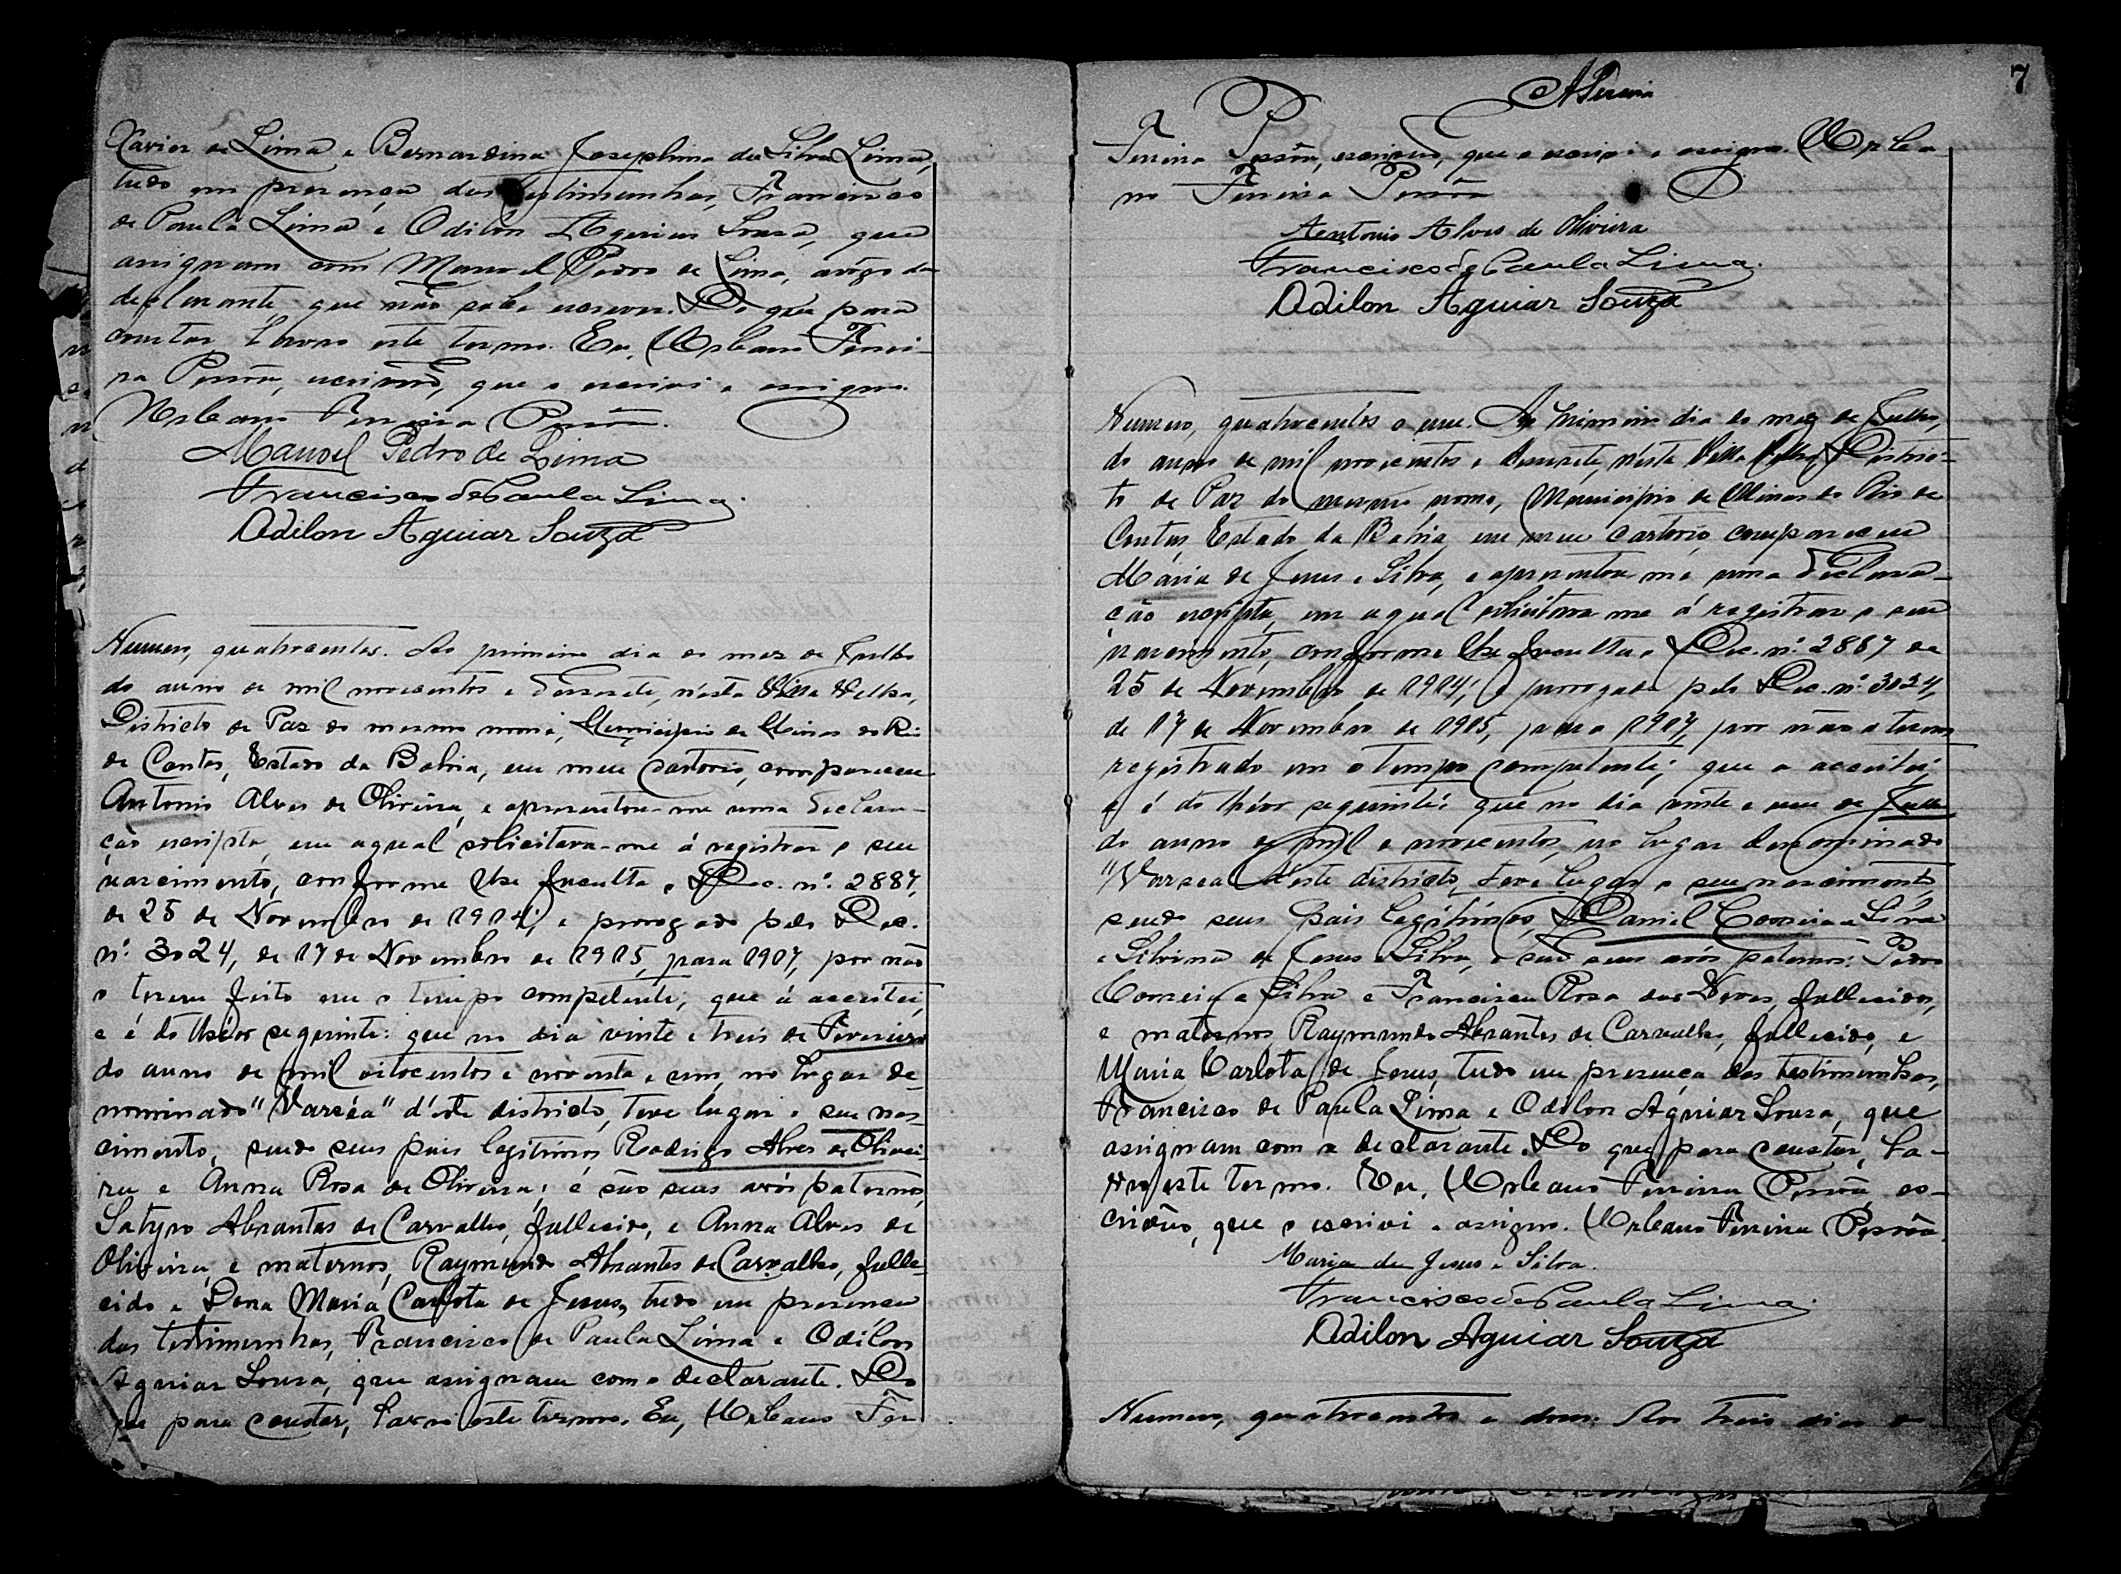 Xavier de Lima e Bernardina Josephina da Silva Lima,
tudo em presença das testimunhas, Francisco
de Paula Lima e Odilon Aguiar Souza, que
assignam com Manoel Pedro de Lima, arôgo da
declarante, que não sabe escrever. Do que para
constar lavro este termo. Eu, Urbano Ferrei-
ra Pessôa, escrivão, que o escrivi e assigno.
Urbano Ferreira Pessôa.
Manoel Pedro de Lima
Francisco de Paula Lima.
Odilon Aguiar Souza
Numero, quatrocentos. Ao primeiro dia do mez de Julho
do anno de mil novecentos e desesete, n'esta Villa Velha,
Districto de Paz do mesmo nome, Municipio de Minas do Rio
de Contas, Estado da Bahia, em meu cartorio, compareceu
Antonio Alves de Oliveira, e apresentou-me uma declara-
ção escripta, em aqual solicitava-me á registrar o seu
nascimento, conforme lhe faculta o Dec. nº. 2887,
de 25 de Novembro de 1914, e prorogado pelo Dec.
nº. 3024, de 17 de Novembro de 1915, para 1917, por não
o terem feito em o tempo competente; que á acceitei,
e é do théor seguinte: que no dia vinte e treis de Fevereiro
do anno de mil oitocentos e noventa e um, no lugar de-
nominado "Varzéa" d'este districto, teve lugar o seu nas-
cimento, sendo seus pais legitimos Rodrigo Alves de Olivei-
ra e Anna Rosa de Oliveira; é são seus avós paternos,
Satyro Abrantes de Carvalho, fallecido, e Anna Alves de
Oliveira, e maternos, Raymundo Abrantes de Carvalho, falle-
cido e Dona Maria Carlota de Jesus, tudo em presença
das testimunhas, Francisco de Paula Lima e Odilon
Aguiar Souza, que assignam com o declarante. Do
que para constar, lavro este termo. Eu, Urbano Fer
7
Ferreira Pessôa, escrivão, que o escrivi e assigno. Urba-
no Ferreira Pessôa
Antonio Alves de Oliveira
Francisco de Paula Lima.
Odilon Aguiar Souza
Numero, quatrocentos e um. Ao primeiro dia do mez de Julho,
do anno de mil novecentos e desesete, n'esta Villa Velha, Distric-
to de Paz do mesmo nome, Municipio de Minas do Rio de
Contas, Estado da Bahia, em meu cartorio, compareceu
Maria de Jesus e Silva, e apresentou-me uma declara-
ção escripta, em aqual solicitava-me á registrar o seu
nascimento, conforme lhe faculta o Dec. nº. 2887 de
25 de Novembro de 1914, e prorogado pelo Dec. nº. 3024,
de 17 de Novembro de 1915, para 1917, por não o terem
registrado em o tempo competente; que a acceitei,
e é do théor seguinte: que no dia vinte e um de Julho
do anno de mil e novecentos, no lugar denominado
"Varzea" d'este districto, teve lugar o seu nascimento
sendo seus pais legitimos, Daniel Correia e Silva
e Silvina de Jesus e Silva, e são seus avós paternos: Pedro
Correia e Silva e Francisca Rosa das Neves, fallecidos,
e maternos Raymundo Abrantes de Carvalho, fallecido, e
Maria Carlota de Jesus, tudo em presença das testimunhas,
Francisco de Paula Lima e Odilon Aguiar Souza, que
assignam com a declarante. Do que para constar, la-
vro este termo. Eu, Urbano Ferreira Pessôa, es-
crivão, que o escrivi e assigno. Urbano Ferreira Pessôa.
Maria de Jesus e Silva.
Francisco de Paula Lima.
Odilon Aguiar Souza
Numero, quatrocentos e dous. Aos treis dias do